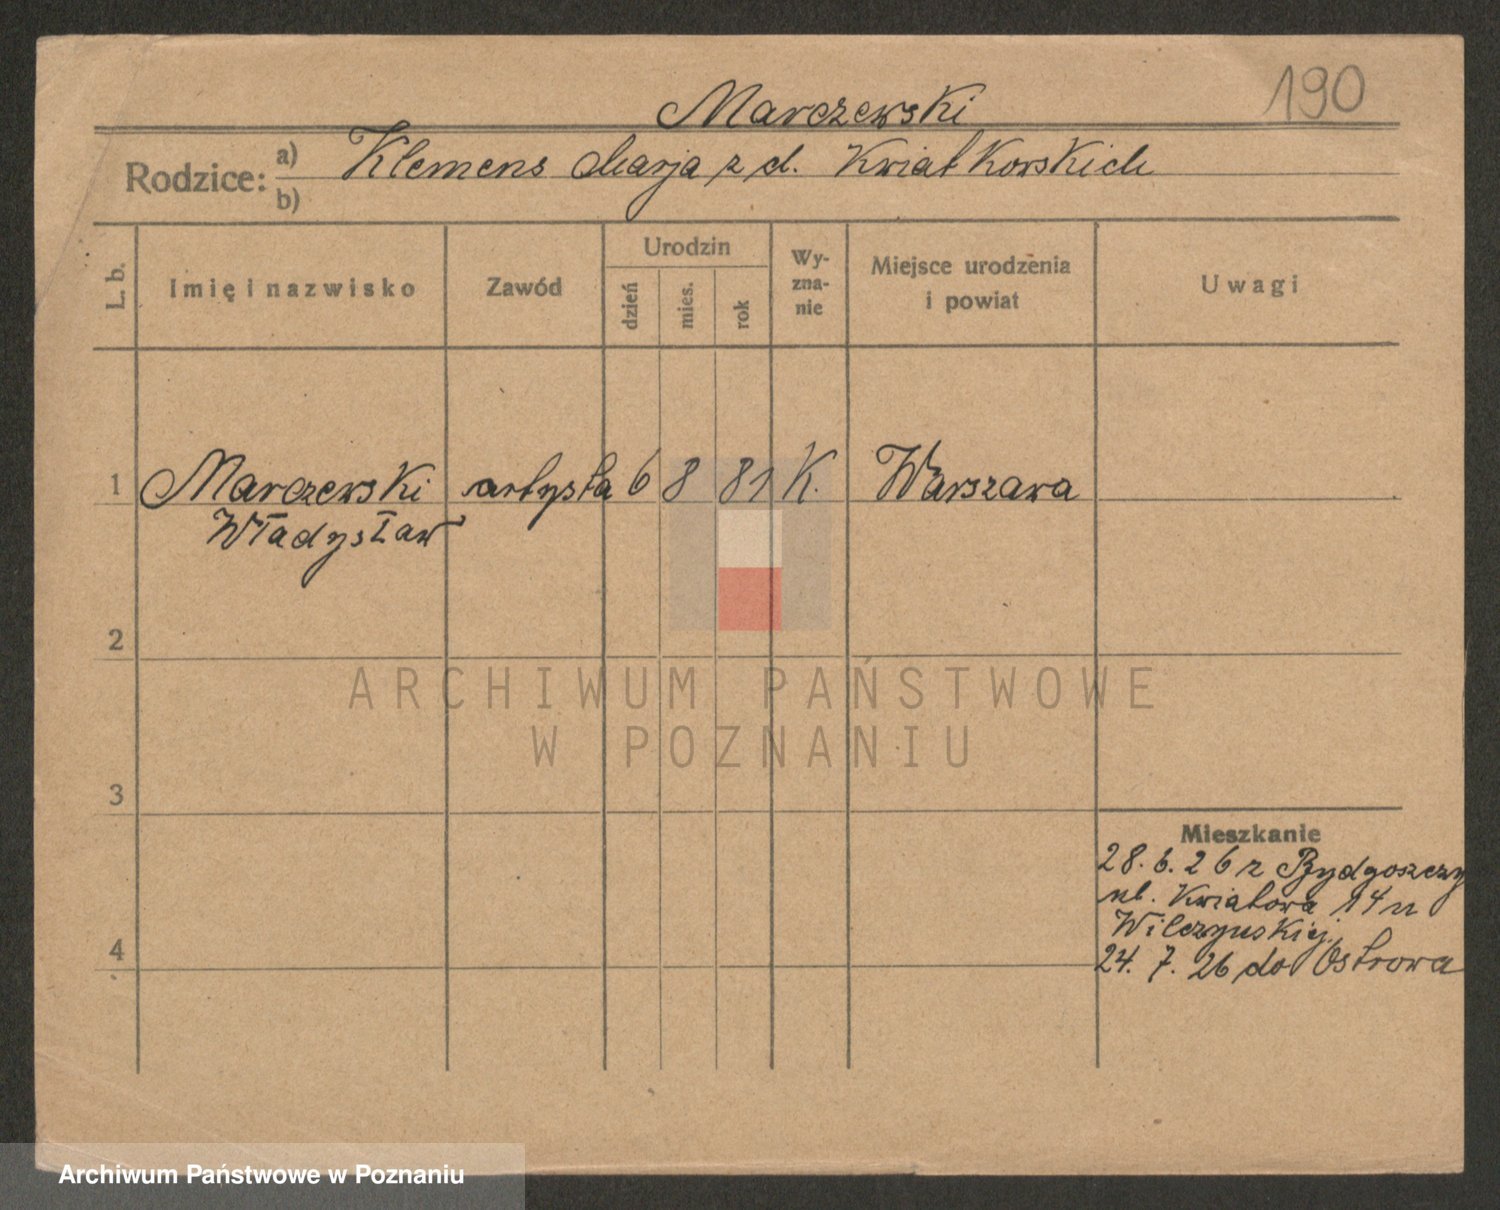 190
Marczewski
Rodzice: a) Klemens Marja z d. Kwiatkowskich
b)
L. b. Imię i nazwisko Zawód Urodzin dzień mies. rok Wyzna-nie Miejsce urodzenia i powiat Uwagi
1 Marczewski artysta 6 8 81 K. Warszawa
Władysław
2
ARCHIWUM PAŃSTWOWE
W POZNANIU
3
Mieszkanie
28. 6. 26 z Bydgoszczy
ul. Kwiatowa 14 u
Wilczyńskiej
4
24. 7. 26 do Ostrowa
Archiwum Państwowe w Poznaniu